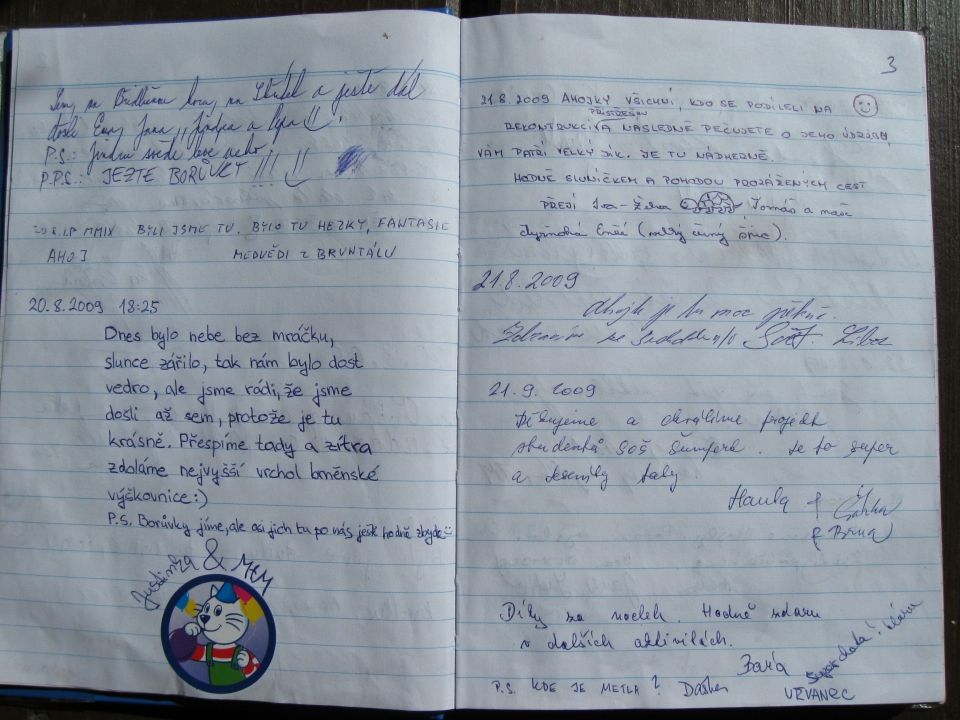 a ještě dál
došli Jana, Jindra a
P.S.: Jindru
P.P.S.: JEZTE BORŮVKY !!!
MMIX BYLI JSME TU. BYLO TU HEZKY, FANTASIE
AHOJ MEDVĚDI Z BRUNTÁLU
20.8.2009 18:25
Dnes bylo nebe bez mráčku,
slunce zářilo, tak nám bylo dost
vedro, ale jsme rádi, že jsme
došli až sem, protože je tu
krásně. Přespíme tady a zítra
zdoláme nejvyšší vrchol brněnské
výškovnice :)
P.S. Borůvky jíme, ale asi jich tu po nás ještě hodně zbyde
Justinka & MCM
3
21.8.2009 AHOJKY VŠICHNI, KDO SE PODÍLELI NA
PŘÍSTŘEŠKU
REKONSTRUKCI A NÁSLEDNĚ PEČUJETE O JEHO ÚDRŽBU,
VÁM PATŘÍ VELKÝ DÍK. JE TU NÁDHERNĚ.
HODNĚ SLUNÍČKEM A POHODOU PROZÁŘENÝCH CEST
PŘEJÍ Iva-Želva Tomáš a naše
čtyřnohá
21.8.2009
Ahojk je tu moc pěkně.
Zdravím se
21.9.2009
Děkujeme a chválíme projekt
studentů SOŠ Šumperk. Je to super
a Jeseníky taky.
Hanka &
& Brňa
Díky za nocleh. Hodně zdaru
v dalších aktivitách.
Bára
P.S. KDE JE METLA? Dašken
Super chata! Klára
URVANEC